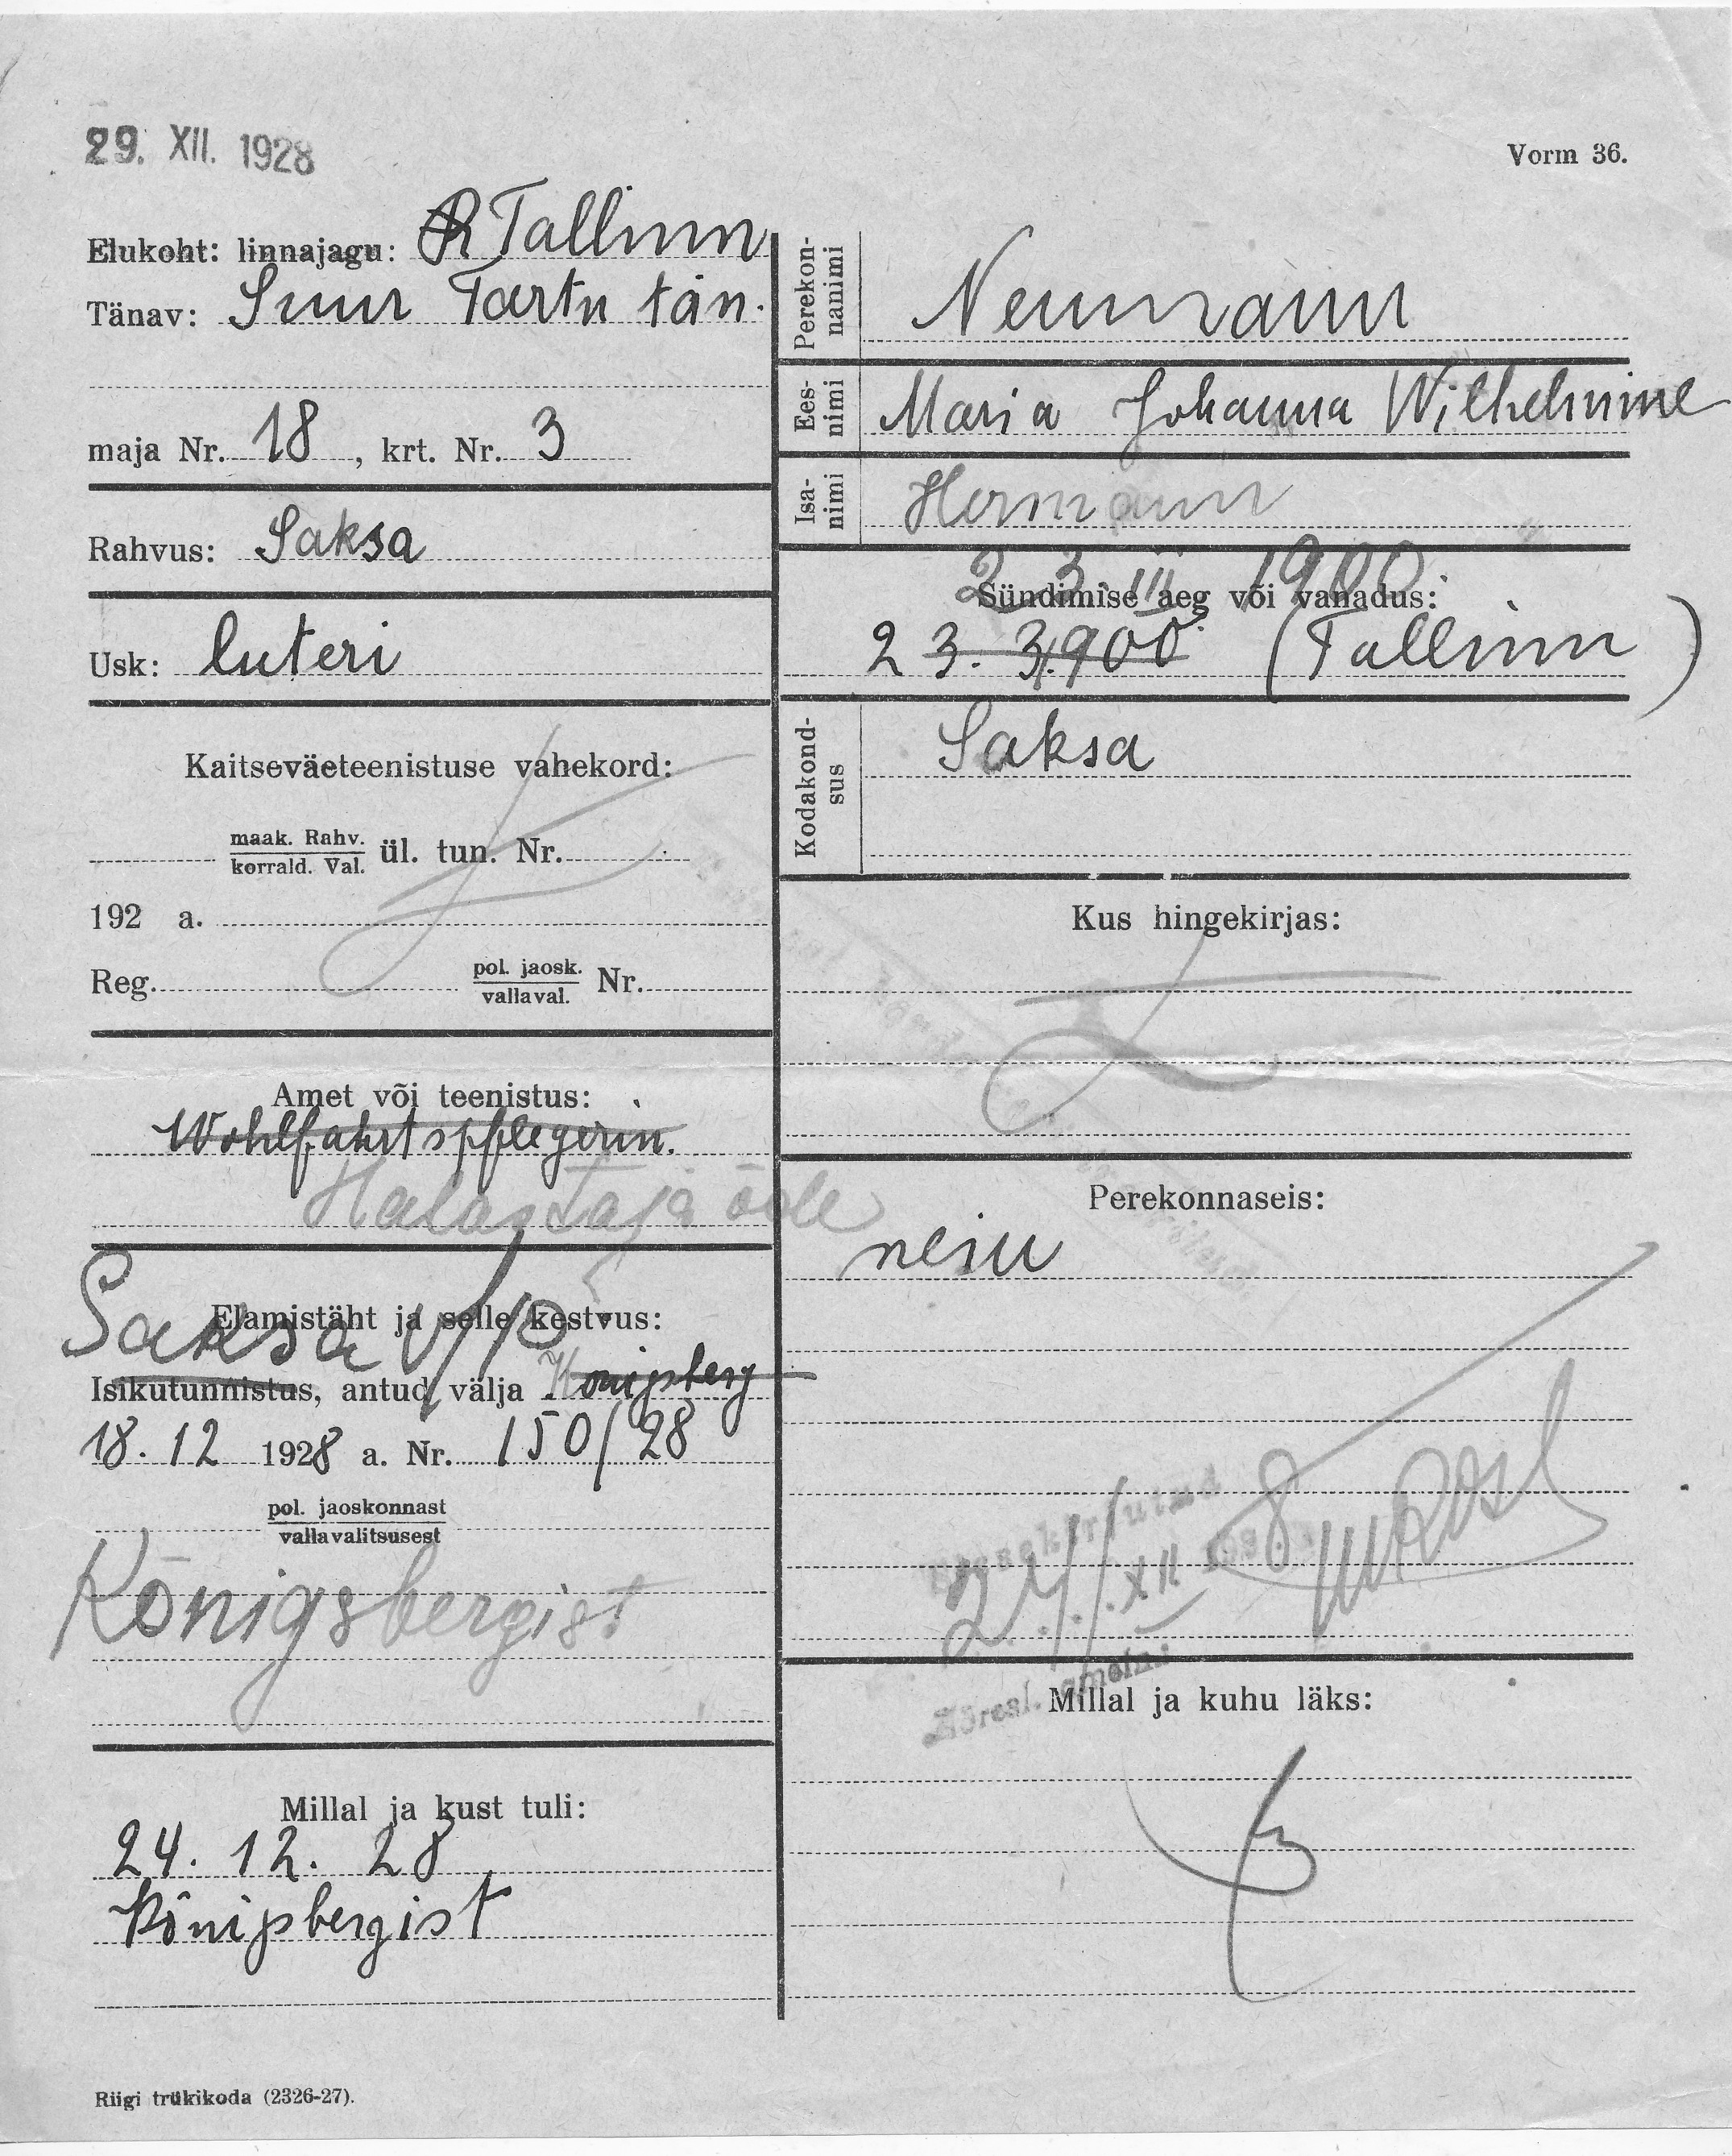 29. XII. 1928
Vorm 36.
Elukoht: linnajagu: R Tallinn
Tänav: Suur Tartu tän.
maja Nr. 18, krt. Nr. 3
Rahvus: Saksa
Usk: luteri
Kaitseväeteenistuse vahekord:
maak. Rahv.
korrald. Val.
ül. tun. Nr.
192 a.
Reg. pol. jaosk. Nr.
vallaval.
Amet või teenistus:
Wohlfahrtspflegerin.
Halastaja õde
Saksa v/p
Elamistäht ja selle kestvus:
Isikutunnistus, antud välja Königsberg
18. 12 1928 a. Nr. 150/28
pol. jaoskonnast
vallavalitsusest
Königsbergist
Millal ja kust tuli:
24. 12. 28
Königsbergist
Riigi trükikoda (2326-27).
Perekon-
nanimi
Neumann
Ees-
nimi
Maria Johanna Wilhelmine
Isa-
nimi
Hermann
23 III 1900
Sündimise aeg või vanadus:
23. 3. 900 (Tallinn)
Kodakond-
sus
Saksa
Kus hingekirjas:
Perekonnaseis:
neiu
Sissekirjutud
XII 192
Millal ja kuhu läks: